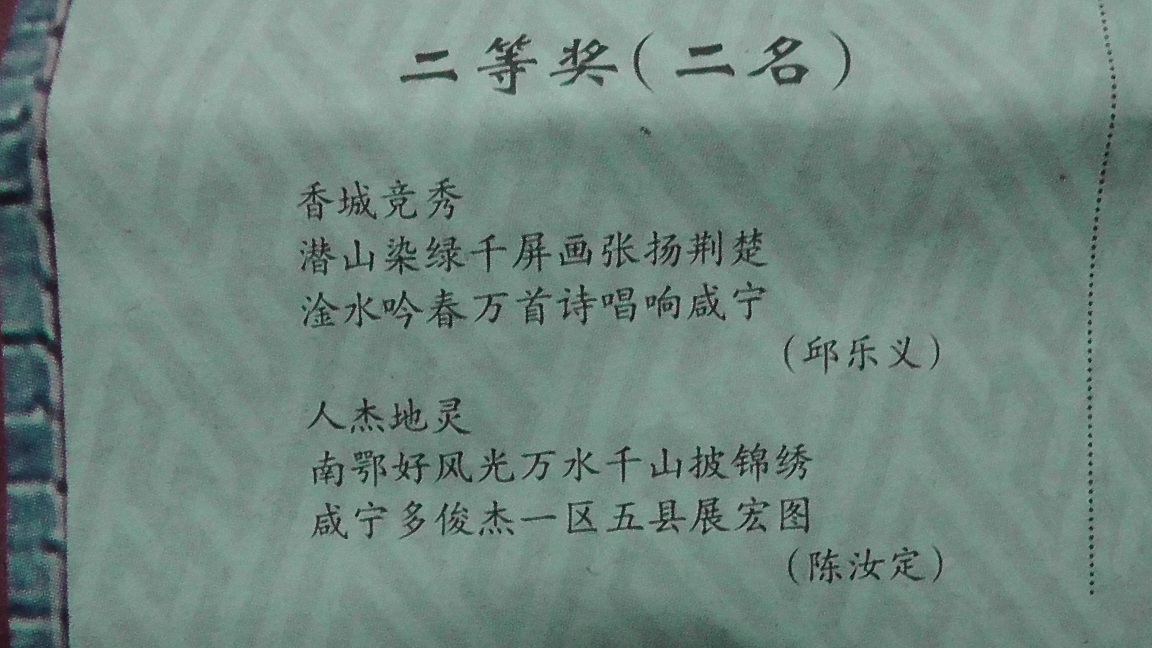 二等奖(二名)
香城竞秀
潜山染绿千屏画张扬荆楚
淦水吟春万首诗唱响咸宁
(邱乐义)
人杰地灵
南鄂好风光万水千山披锦绣
咸宁多俊杰一区五县展宏图
(陈汝定)